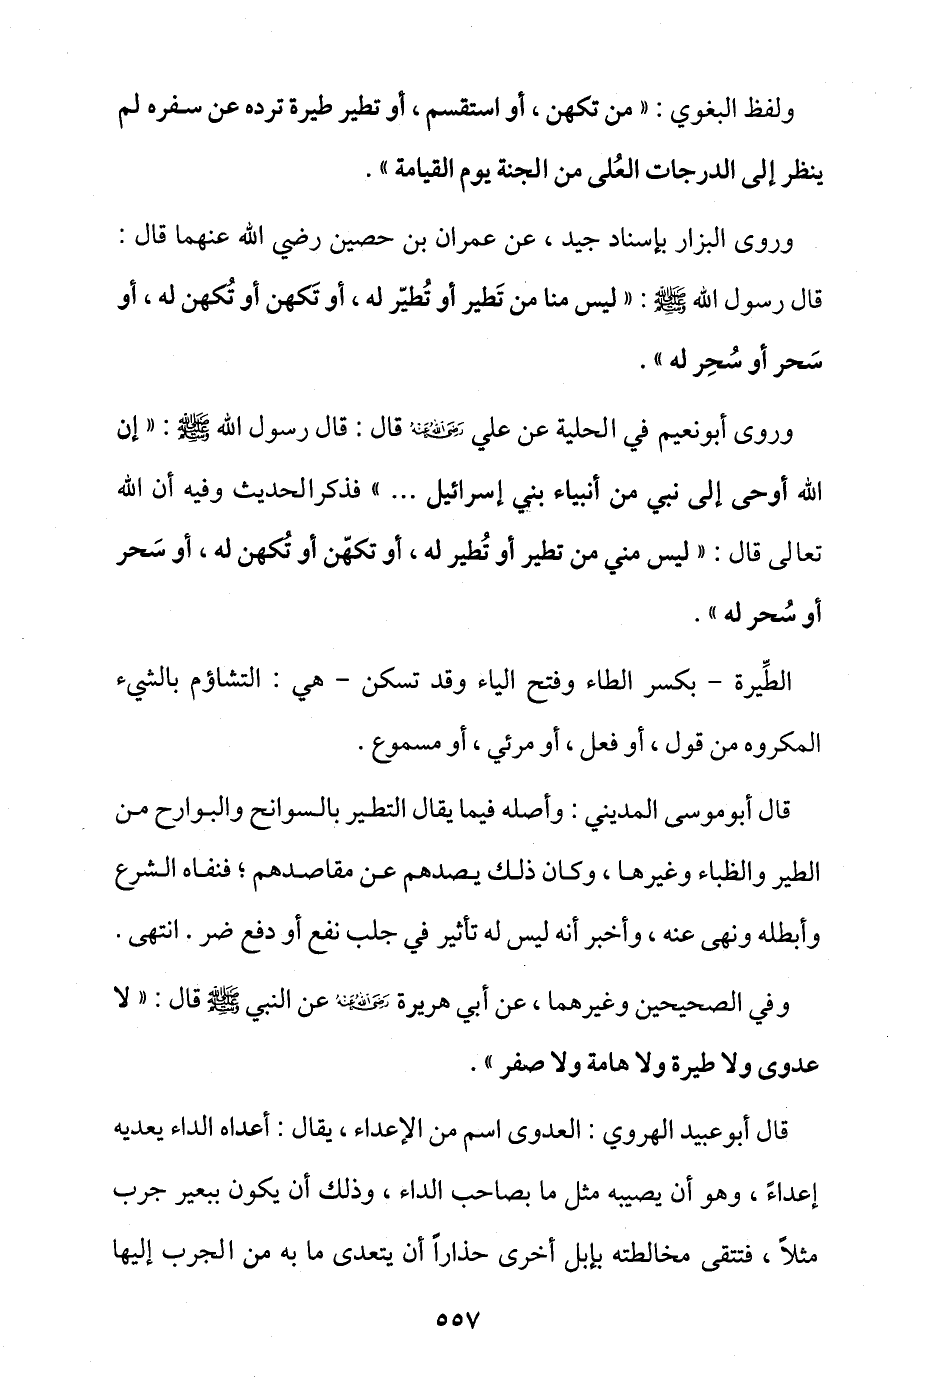 ولفظ البغوي : « من تكهن ، أو استقسم ، أو تطير طيرة ترده عن سفره لم
ينظر إلى الدرجات العُلى من الجنة يوم القيامة » .
وروى البزار بإسناد جيد ، عن عمران بن حصين رضي الله عنهما قال :
قال رسول الله ﷺ : « ليس منا من تَطير أو تُطيّر له ، أو تَكهن أو تُكهن له ، أو
سَحر أو سُحِر له » .
وروى أبونعيم في الحلية عن علي رضي الله عنه قال : قال رسول الله ﷺ : « إن
الله أوحى إلى نبي من أنبياء بني إسرائيل ... » فذكرالحديث وفيه أن الله
تعالى قال : « ليس مني من تطير أو تُطير له ، أو تكهّن أو تُكهن له ، أو سَحر
أو سُحر له » .
الطِّيرة – بكسر الطاء وفتح الياء وقد تسكن – هي : التشاؤم بالشيء
المكروه من قول ، أو فعل ، أو مرئي ، أو مسموع .
قال أبوموسى المديني : وأصله فيما يقال التطير بالسوانح والبوارح من
الطير والظباء وغيرها ، وكان ذلك يصدهم عن مقاصدهم ؛ فنفاه الشرع
وأبطله ونهى عنه ، وأخبر أنه ليس له تأثير في جلب نفع أو دفع ضر . انتهى .
وفي الصحيحين وغيرهما ، عن أبي هريرة رضي الله عنه عن النبي ﷺ قال : « لا
عدوى ولا طيرة ولا هامة ولا صفر » .
قال أبوعبيد الهروي : العدوى اسم من الإعداء ، يقال : أعداه الداء يعديه
إعداءً ، وهو أن يصيبه مثل ما بصاحب الداء ، وذلك أن يكون ببعير جرب
مثلاً ، فتتقى مخالطته بإبل أخرى حذاراً أن يتعدى ما به من الجرب إليها
٥٥٧